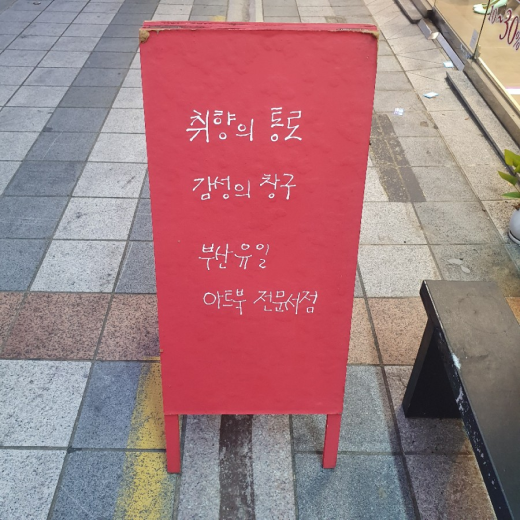 취향의 통로
감성의 창구
부산 유일
아트북 전문서점